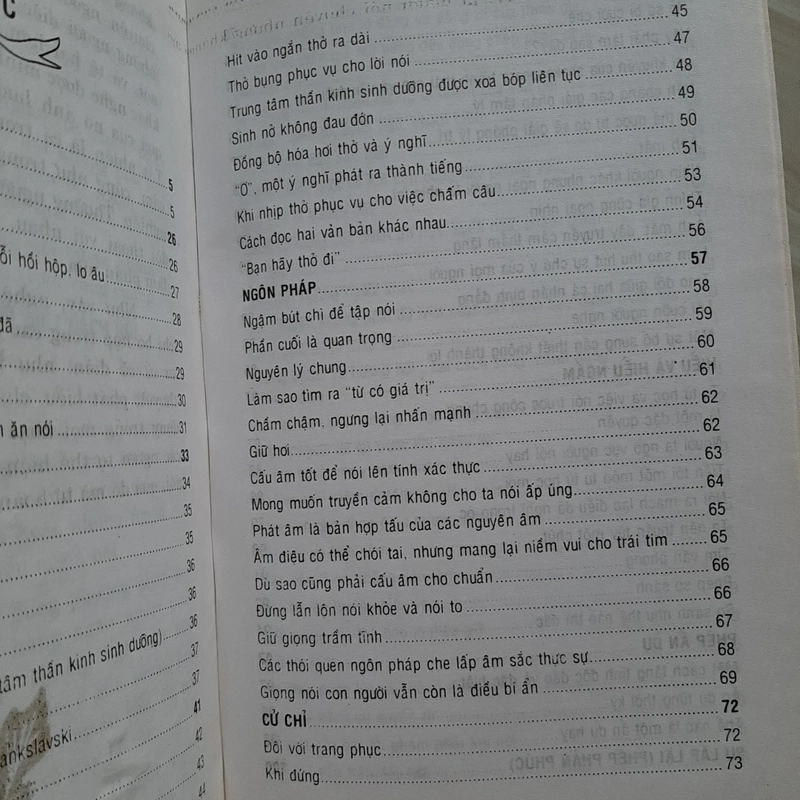 C
5
5
26
ỗi hồi hộp, lo âu 26
27
28
đã 29
29
30
n ăn nói 31
33
34
35
35
36
36
36
tâm thần kinh sinh dưỡng) 37
37
41
ankslavski 42
43
44
45
Hít vào ngắn thở ra dài 47
Thở bụng phục vụ cho lời nói 48
Trung tâm thần kinh sinh dưỡng được xoa bóp liên tục 49
Sinh nở không đau đớn 50
Đồng bộ hóa hơi thở và ý nghĩ 51
"Ơ", một ý nghĩ phát ra thành tiếng 53
Khi nhịp thở phục vụ cho việc chấm câu 54
Cách đọc hai văn bản khác nhau 56
"Bạn hãy thở đi" 57
NGÔN PHÁP 58
Ngậm bút chì để tập nói 59
Phần cuối là quan trọng 60
Nguyên lý chung 61
Làm sao tìm ra "từ có giá trị" 62
Chầm chậm, ngưng lại nhấn mạnh 62
Giữ hơi 63
Cấu âm tốt để nói lên tính xác thực 64
Mong muốn truyền cảm không cho ta nói ấp úng 65
Phát âm là bản hợp tấu của các nguyên âm 65
Âm điệu có thể chói tai, nhưng mang lại niềm vui cho trái tim 66
Dù sao cũng phải cấu âm cho chuẩn 66
Đừng lẫn lộn nói khỏe và nói to 67
Giữ giọng trầm tĩnh 68
Các thói quen ngôn pháp che lấp âm sắc thực sự 69
Giọng nói con người vẫn còn là điều bí ẩn 72
CỬ CHỈ 72
Đối với trang phục 73
Khi đứng